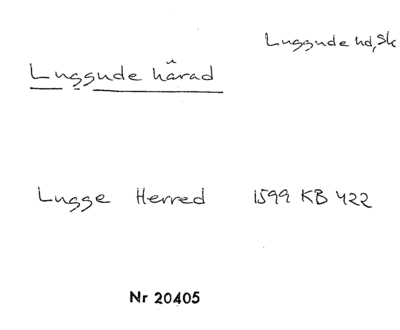 Luggude hd, Sk
Luggude härad
Lugge Herred 1599 KB 422
Nr 20405